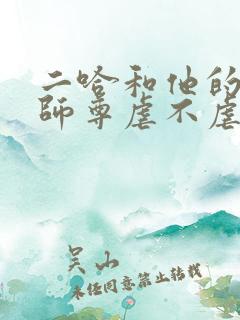 二哈和他的
師尊虐不虐
吴山
未经同意禁止转载